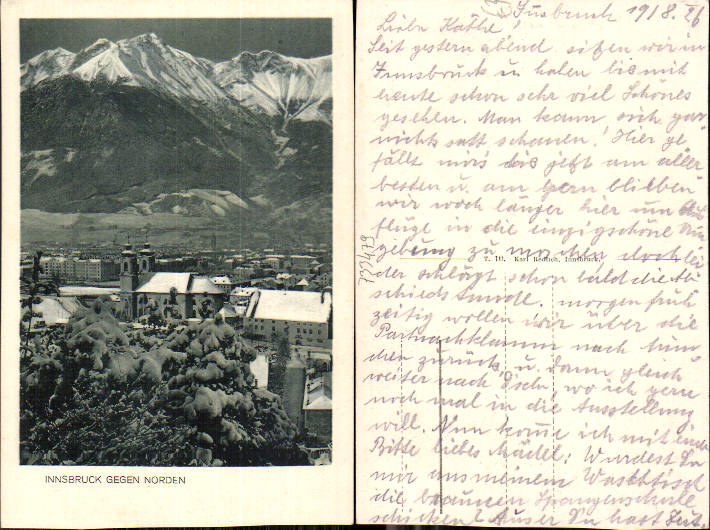 INNSBRUCK GEGEN NORDEN
Innsbruck 19/8. 26
Liebe Käthe!
Seit gestern abend sitzen wir in
Innsbruck u. haben bis mit
heute schon sehr viel Schönes
gesehen. Man kann sich gar
nicht satt schauen! Hier ge
fällt mirs bis jetzt am aller
besten u. am gern blieben
wir noch länger hier um Aus
flüge in die einzigschöne Um
gebung zu machen doch lei
der schlägt schon bald die Ab
schiedsstunde. morgen früh
zeitig wollen wir über die
Partnachklamm nach Mün
chen zurück u. dann gleich
weiter nach wo ich gern
noch mal in die Ausstellung
will. Nun komme ich mit einer
Bitte liebes Mädel: Würdest Du
mir aus meinem Waschtisch
die braunen Spangenschuhe
schicken? Du hast
T. 10. Karl Redlich, Innsbruck.
733479